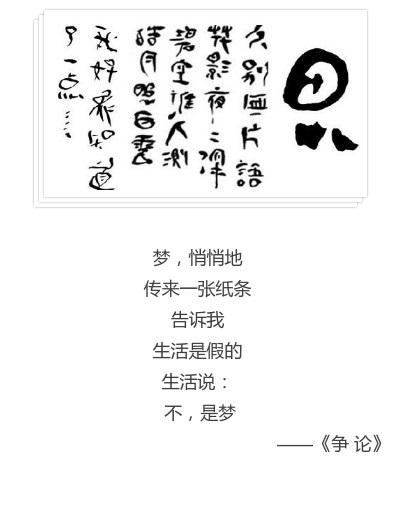 思
久别無片語
影夜
碧空誰人測
月照白雲
我好象知道
了一点……
梦，悄悄地
传来一张纸条
告诉我
生活是假的
生活说：
不，是梦
——《争 论》